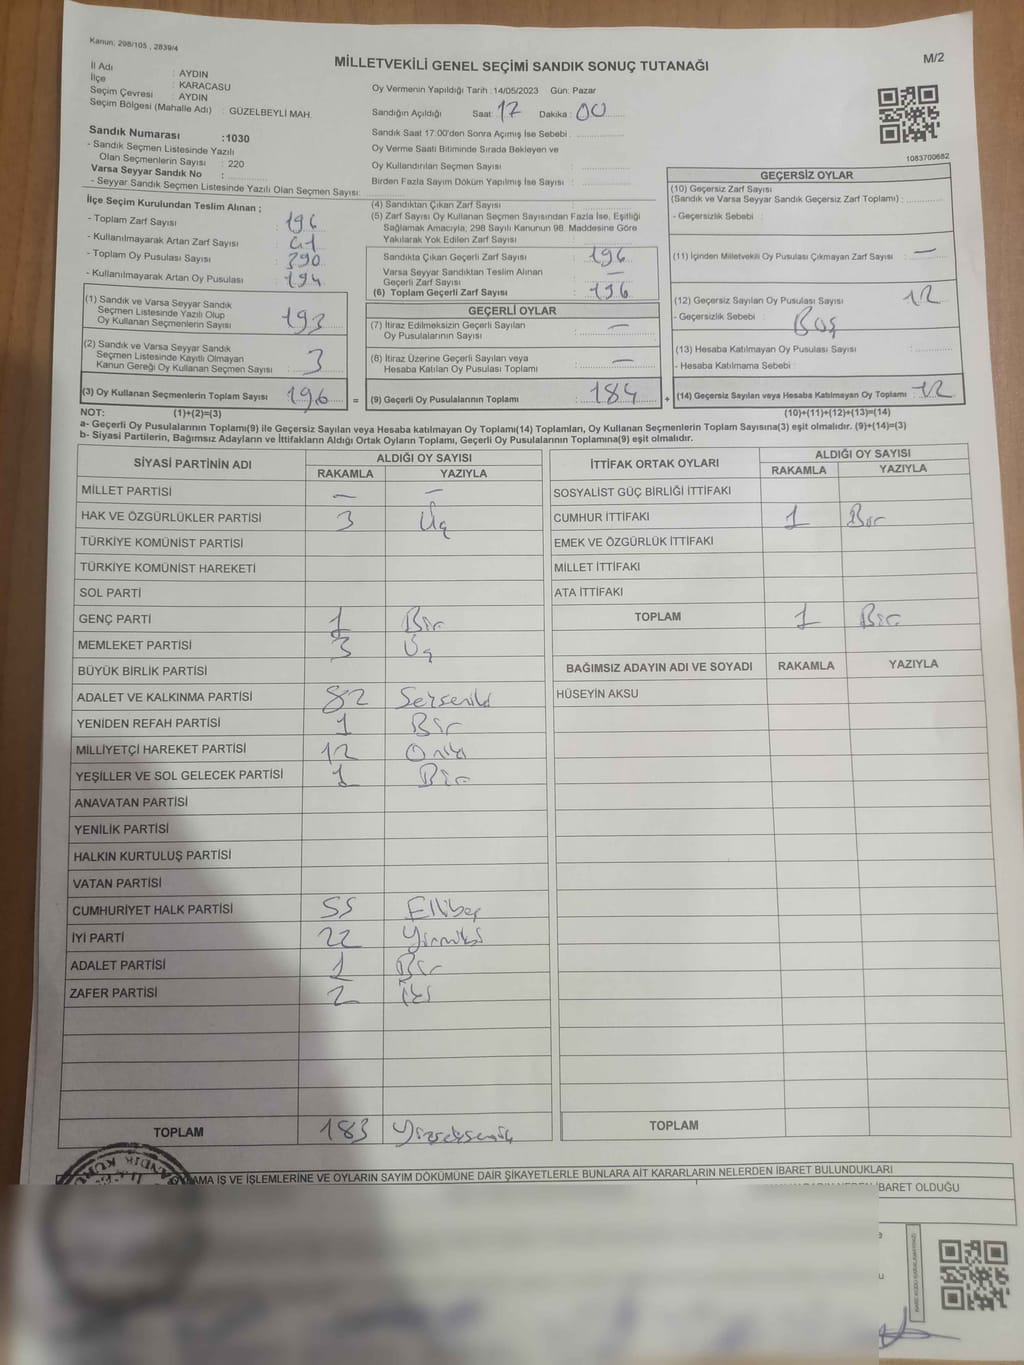 Kanun: 298/105 , 2839/4
MİLLETVEKİLİ GENEL SEÇİMİ SANDIK SONUÇ TUTANAĞI
M/2
İl Adı : AYDIN
İlçe : KARACASU
Seçim Çevresi : AYDIN
Seçim Bölgesi (Mahalle Adı) : GÜZELBEYLİ MAH.
Sandık Numarası :1030
- Sandık Seçmen Listesinde Yazılı
Olan Seçmenlerin Sayısı : 220
Varsa Seyyar Sandık No :
- Seyyar Sandık Seçmen Listesinde Yazılı Olan Seçmen Sayısı:
Oy Vermenin Yapıldığı Tarih :14/05/2023 Gün: Pazar
Sandığın Açıldığı Saat: 17 Dakika: 00
Sandık Saat 17:00'den Sonra Açımış İse Sebebi :
Oy Verme Saati Bitiminde Sırada Bekleyen ve
Oy Kullandırılan Seçmen Sayısı :
Birden Fazla Sayım Döküm Yapılmış İse Sayısı :
1083700682
İlçe Seçim Kurulundan Teslim Alınan ;
- Toplam Zarf Sayısı : 196
- Kullanılmayarak Artan Zarf Sayısı :
- Toplam Oy Pusulası Sayısı : 390
- Kullanılmayarak Artan Oy Pusulası : 194
(1) Sandık ve Varsa Seyyar Sandık
Seçmen Listesinde Yazılı Olup
Oy Kullanan Seçmenlerin Sayısı : 193
(2) Sandık ve Varsa Seyyar Sandık
Seçmen Listesinde Kayıtlı Olmayan
Kanun Gereği Oy Kullanan Seçmen Sayısı : 3
(3) Oy Kullanan Seçmenlerin Toplam Sayısı : 196 =
(4) Sandıktan Çıkan Zarf Sayısı :
(5) Zarf Sayısı Oy Kullanan Seçmen Sayısından Fazla İse, Eşitliği
Sağlamak Amacıyla, 298 Sayılı Kanunun 98. Maddesine Göre
Yakılarak Yok Edilen Zarf Sayısı :
Sandıkta Çıkan Geçerli Zarf Sayısı : 196
Varsa Seyyar Sandıktan Teslim Alınan
Geçerli Zarf Sayısı : —
(6) Toplam Geçerli Zarf Sayısı : 196
GEÇERLİ OYLAR
(7) İtiraz Edilmeksizin Geçerli Sayılan
Oy Pusulalarının Sayısı : —
(8) İtiraz Üzerine Geçerli Sayılan veya
Hesaba Katılan Oy Pusulası Toplamı : —
(9) Geçerli Oy Pusulalarının Toplamı : 184 +
GEÇERSİZ OYLAR
(10) Geçersiz Zarf Sayısı
(Sandık ve Varsa Seyyar Sandık Geçersiz Zarf Toplamı) :
- Geçersizlik Sebebi :
(11) İçinden Milletvekili Oy Pusulası Çıkmayan Zarf Sayısı : —
(12) Geçersiz Sayılan Oy Pusulası Sayısı : 12
- Geçersizlik Sebebi : Boş
(13) Hesaba Katılmayan Oy Pusulası Sayısı :
- Hesaba Katılmama Sebebi :
(14) Geçersiz Sayılan veya Hesaba Katılmayan Oy Toplamı : 12
NOT: (1)+(2)=(3) (10)+(11)+(12)+(13)=(14)
a- Geçerli Oy Pusulalarının Toplamı(9) ile Geçersiz Sayılan veya Hesaba katılmayan Oy Toplamı(14) Toplamları, Oy Kullanan Seçmenlerin Toplam Sayısına(3) eşit olmalıdır. (9)+(14)=(3)
b- Siyasi Partilerin, Bağımsız Adayların ve İttifakların Aldığı Ortak Oyların Toplamı, Geçerli Oy Pusulalarının Toplamına(9) eşit olmalıdır.
SİYASİ PARTİNİN ADI ALDIĞI OY SAYISI
RAKAMLA YAZIYLA
MİLLET PARTİSİ — —
HAK VE ÖZGÜRLÜKLER PARTİSİ 3 Üç
TÜRKİYE KOMÜNİST PARTİSİ
TÜRKİYE KOMÜNİST HAREKETİ
SOL PARTİ
GENÇ PARTİ 1 Bir
MEMLEKET PARTİSİ 3 Üç
BÜYÜK BİRLİK PARTİSİ
ADALET VE KALKINMA PARTİSİ 82
YENİDEN REFAH PARTİSİ 1 Bir
MİLLİYETÇİ HAREKET PARTİSİ 12 Oniki
YEŞİLLER VE SOL GELECEK PARTİSİ 1 Bir
ANAVATAN PARTİSİ
YENİLİK PARTİSİ
HALKIN KURTULUŞ PARTİSİ
VATAN PARTİSİ
CUMHURİYET HALK PARTİSİ 55 Ellibeş
İYİ PARTİ 22 Yirmiiki
ADALET PARTİSİ 1 Bir
ZAFER PARTİSİ 2 İki
TOPLAM 183 Yüzseksenüç
İTTİFAK ORTAK OYLARI ALDIĞI OY SAYISI
RAKAMLA YAZIYLA
SOSYALİST GÜÇ BİRLİĞİ İTTİFAKI
CUMHUR İTTİFAKI 1 Bir
EMEK VE ÖZGÜRLÜK İTTİFAKI
MİLLET İTTİFAKI
ATA İTTİFAKI
TOPLAM 1 Bir
BAĞIMSIZ ADAYIN ADI VE SOYADI RAKAMLA YAZIYLA
HÜSEYİN AKSU
TOPLAM
AMA İŞ VE İŞLEMLERİNE VE OYLARIN SAYIM DÖKÜMÜNE DAİR ŞİKAYETLERLE BUNLARA AİT KARARLARIN NELERDEN İBARET BULUNDUKLARI
İBARET OLDUĞU